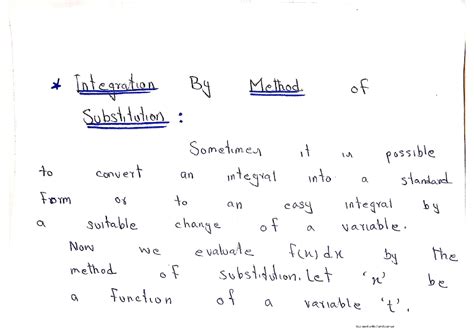 * Integration By Method of
Substitution :
Sometimes it is possible
to convert an integral into a standard
Form or to an easy integral by
a suitable change of a variable.
Now we evaluate f(x) dx by the
method of substitution. Let 'x' be
a function of a variable 't'.